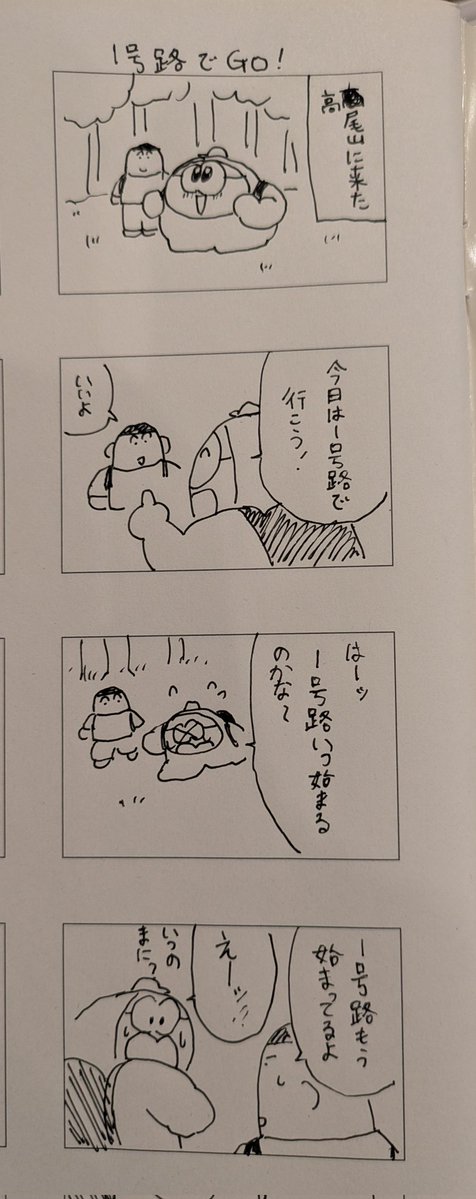 1号路でGO!
高尾山に来た
今日は1号路で
行こう!
いいよ
はーッ
1号路いつ始まる
のかな〜
1号路もう
始まってるよ
えーッ!!
いつの
まにっ